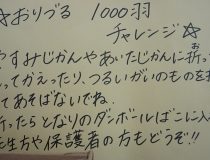 ☆おりづる 1000羽
チャレンジ☆
やすみじかんやあいたじかんに折っ
ってかえったり、つるいがいのものを
てあそばないでね。
ったらとなりのダンボールばこに入
生方や保護者の方もどうぞ!!